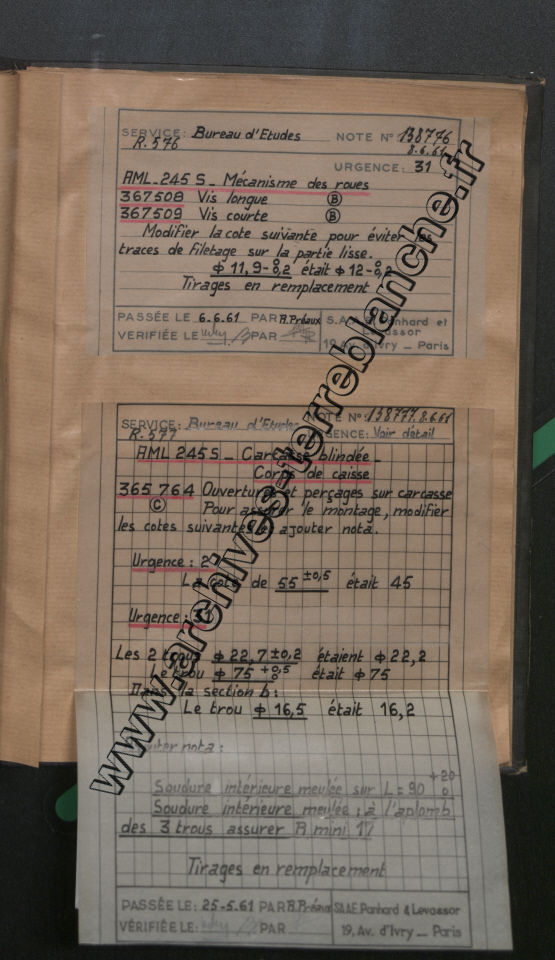 SERVICE: Bureau d'Etudes NOTE N° 138776
R.576 8.6.61
URGENCE: 31
AML.245 S_ Mécanisme des roues
367508 Vis longue (B)
367509 Vis courte (B)
Modifier la cote suivante pour éviter les
traces de filetage sur la partie lisse.
ϕ 11,9-0/0,2 était ϕ 12-0/0,2
Tirages en remplacement
PASSÉE LE 6.6.61 PAR R.Préaux S.A.E. Panhard et
Levassor
VERIFIÉE LE PAR 19 Av. d'Ivry _ Paris
SERVICE: Bureau d'Etudes NOTE N° 138777.8.6.61
R.577 URGENCE: Voir détail
AML 245 S _ Carcasse blindée _
Corps de caisse
365 764 Ouvertures et perçages sur carcasse
(C) Pour assurer le montage, modifier
les cotes suivantes et ajouter nota.
Urgence : 2
La cote de 55 ±0,5 était 45
Urgence : 31
Les 2 trous ϕ 22,7 ±0,2 étaient ϕ 22,2
Le trou ϕ 75 +0,5/0 était ϕ 75
Dans la section b :
Le trou ϕ 16,5 était 16,2
Ajouter nota :
Soudure intérieure meulée sur L = 90 +20/0
Soudure intérieure meulée ; à l'aplomb
des 3 trous assurer R mini 17
Tirages en remplacement
PASSÉE LE: 25-5.61 PAR R.Préaux S.A.E. Panhard & Levassor
VÉRIFIÉE LE: PAR 19, Av. d'Ivry _ Paris
www.archives-terreblanche.fr